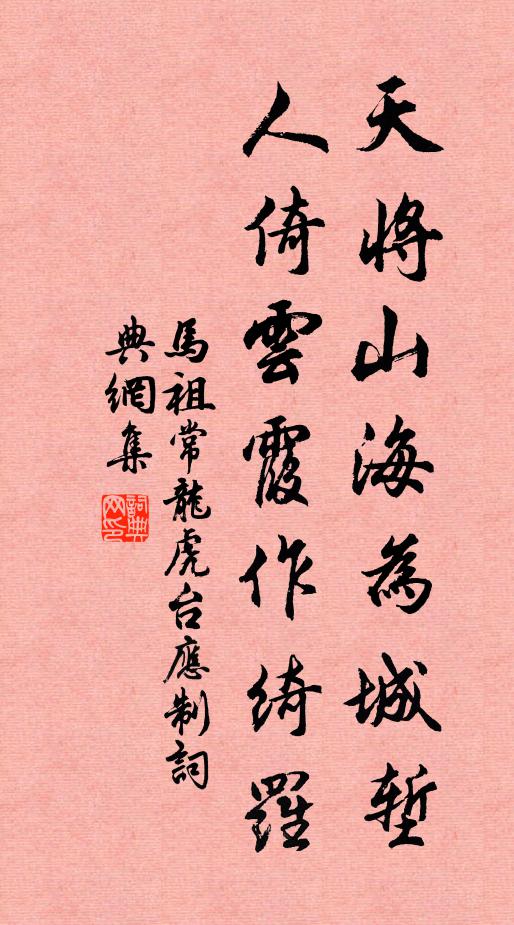 天將山海為城塹
人倚雲霞作綺羅
馬祖常龍虎台應制詞
典網集
詞典網印